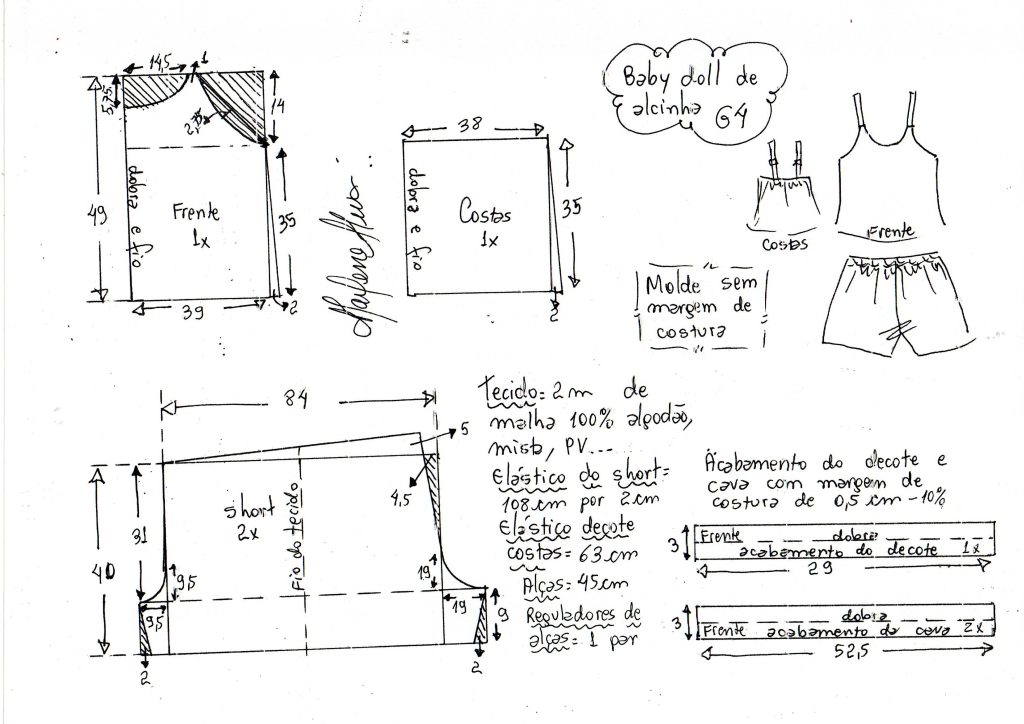 14,5
1
5,75
2,75
14
49
dobra e fio
Frente
1x
35
39
2
Marlene Mukai
38
dobra e fio
Costas
1x
35
2
Baby doll de
alcinha G4
Costas
Frente
Molde sem
margem de
costura
84
5
4,5
31
40
short
2x
Fio do tecido
9,5
9,5
19
19
9
2
2
Tecido= 2m de
malha 100% algodão,
mista, PV...
Elástico do short=
108cm por 2cm
Elástico decote
costas= 63cm
Alças= 45cm
Reguladores de
alças= 1 par
Acabamento do decote e
cava com margem de
costura de 0,5 cm -10%
3
Frente dobra
acabamento do decote 1x
29
3
dobra
Frente acabamento da cava 2x
52,5